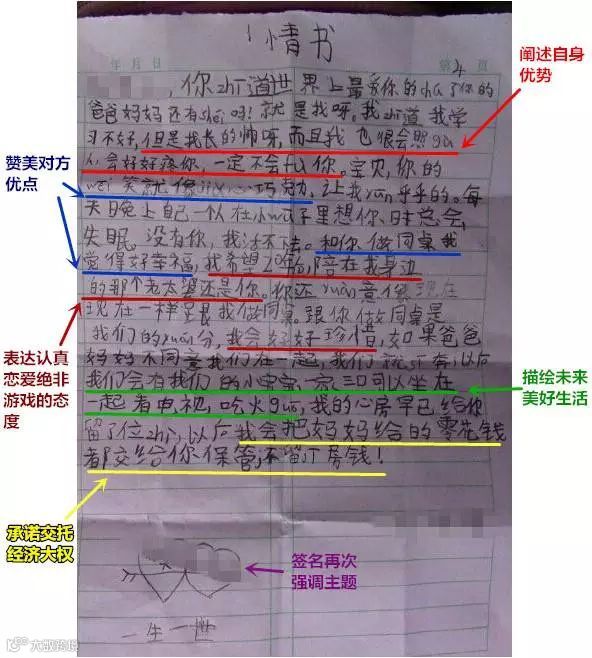 情书
年 月 日
第4页
，你zhi道世界上最爱你的chu了你的
爸爸妈妈还有shei吗!就是我呀。我zhi道我学
习不好,但是我长的帅呀,而且我也很会照gu
人,会好好疼你,一定不会fu你。宝贝,你的
wei笑就像 巧克力,让我 乎乎的。每
天晚上自己一个人在小wu子里想你,时总会
失眠。没有你,我活不下去。和你做同桌我
觉得好幸福,我希望 陪在我身边
的那个老太婆还是你。你还yuan意像现在
现在一样坐跟我做同桌。跟你做同桌是
我们的yuan分,我会好好珍惜,如果爸爸
妈妈不同意我们在一起,我们就 奔,以后
我们会有我们的小宝宝,一家三口可以坐在
一起看电视,吃火guo,我的心房早已给你
留了位zhi,以后我会把妈妈给的零花钱
都交给你保管,不留 房钱!
一生一世
阐述自身
优势
赞美对方
优点
表达认真
恋爱绝非
游戏的态
度
描绘未来
美好生活
承诺交托
经济大权
签名再次
强调主题
大数跨境